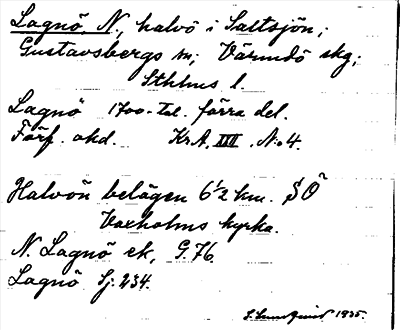 Lagnö, N, halvö i Saltsjön;
Gustavsbergs sn; Värmdö skg;
Sthlms l.
Lagnö 1700-tal. förra del.
Förf. okd. Kr.A. XIII. N:o 4.
Halvön belägen 6½ km. SÖ
Vaxholms kyrka.
N. Lagnö ek, G. 76.
Lagnö Sj. 234.
S. Sundquist 1935.